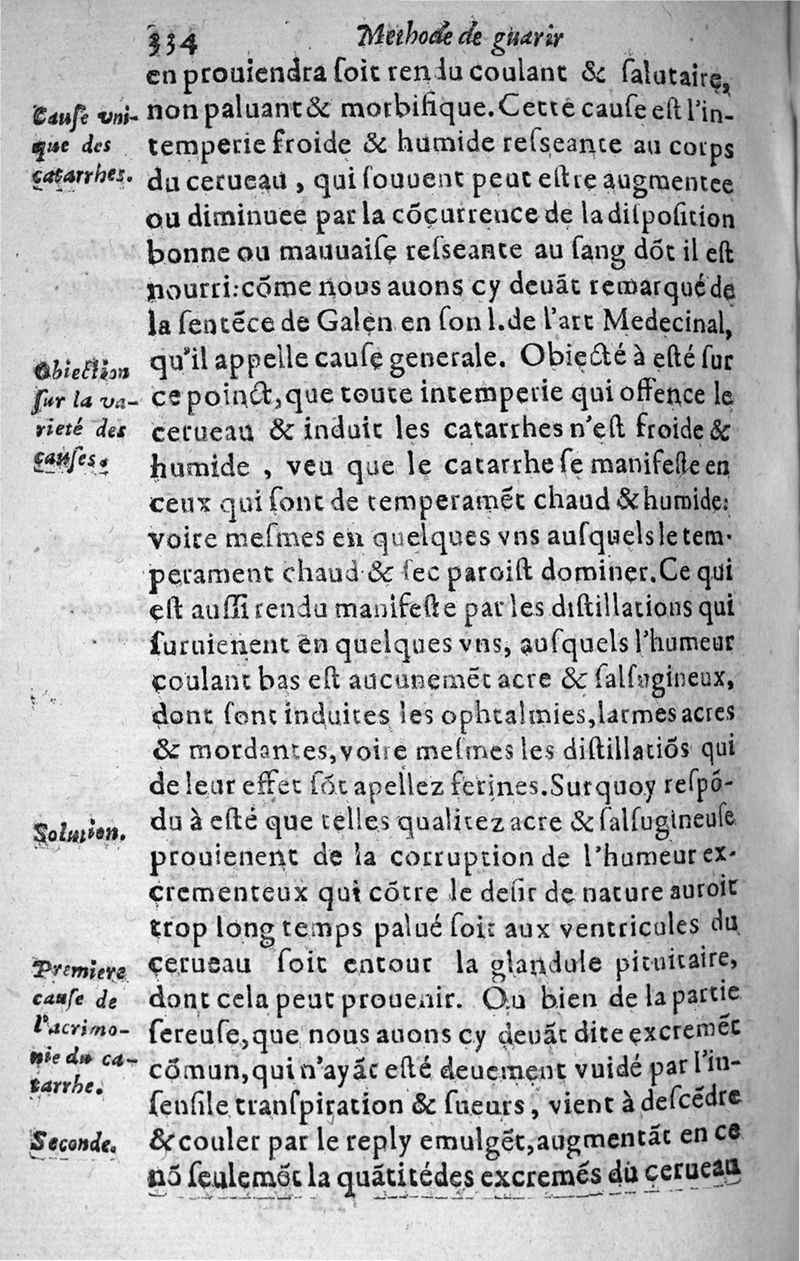 334 Methode de guarir
en prouiendra ſoit rendu coulant & ſalutaire,
Cauſe vni- non paluant & morbifique. Cette cauſe eſt l'in-
que des temperie froide & humide reſseante au corps
catarrhes. du cerueau, qui ſouuent peut eſtre augmentee
ou diminuee par la cõcurrence de la diſpoſition
bonne ou mauuaiſe reſseante au ſang dõt il eſt
nourri: cõme nous auons cy deuãt remarqué de
la ſentẽce de Galen en ſon l. de l'art Medecinal,
Obiection qu'il appelle cauſe generale. Obiecté à eſté ſur
ſur la va- ce poinct, que toute intemperie qui offence le
rieté des cerueau & induit les catarrhes n'eſt froide &
cauſes. humide, veu que le catarrhe ſe manifeſte en
ceux qui ſont de temperamẽt chaud & humide:
voire meſmes en quelques vns auſquels le tem-
perament chaud & ſec paroiſt dominer. Ce qui
eſt auſſi rendu manifeſte par les diſtillations qui
ſuruienent en quelques vns, auſquels l'humeur
coulant bas eſt aucunemẽt acre & ſalſugineux,
dont ſont induites les ophtalmies, larmes acres
& mordantes, voire meſmes les diſtillatiõs qui
de leur effet ſõt apellez ferines. Surquoy reſpõ-
Solution. du à eſté que telles qualitez acre & ſalſugineuſe
prouienent de la corruption de l'humeur ex-
crementeux qui cõtre le deſir de nature auroit
trop long temps palué ſoit aux ventricules du
Premiere cerueau ſoit entour la glandule pituitaire,
cauſe de dont cela peut prouenir. Ou bien de la partie
l'acrimo- ſereuſe, que nous auons cy deuãt dite excremẽt
nie du ca- cõmun, qui n'ayãt eſté deuement vuidé par l'in-
tarrhe. ſenſile tranſpiration & ſueurs, vient à deſcẽdre
Seconde. & couler par le reply emulgẽt, augmentãt en ce
nõ ſeulemẽt la quãtité des excremẽs du cerueau